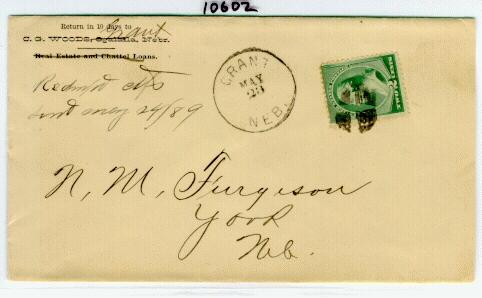 10602
Return in 10 days to
Grant
C. G. WOODS, Ogalalla, Nebr.
Real Estate and Chattel Loans.
Sent may 24/89
GRANT
MAY
25
NEB.
N. M. Furgeson
York
Neb.